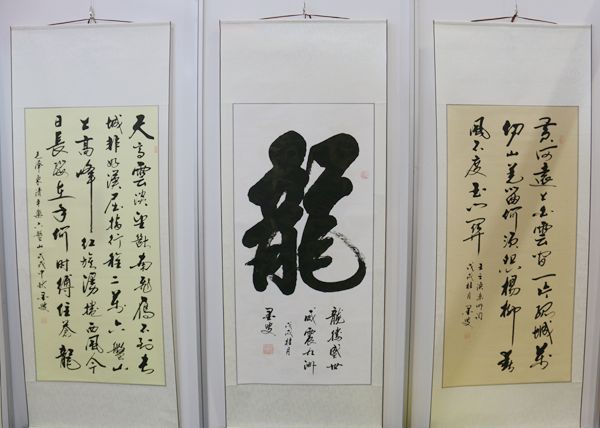 天高雲淡望斷南飛雁不到長
城非好漢屈指行程二萬六盤山
上高峰紅旗漫捲西風今
日長纓在手何時縛住蒼龍
毛澤東清平樂六盤山戊戌中秋墨叟
龍
龍騰盛世
威震九洲
戊戌桂月
墨叟
黃河遠上白雲間一片孤城萬
仞山羌笛何須怨楊柳春
風不度玉門關
王之渙涼州詞
戊戌桂月墨叟